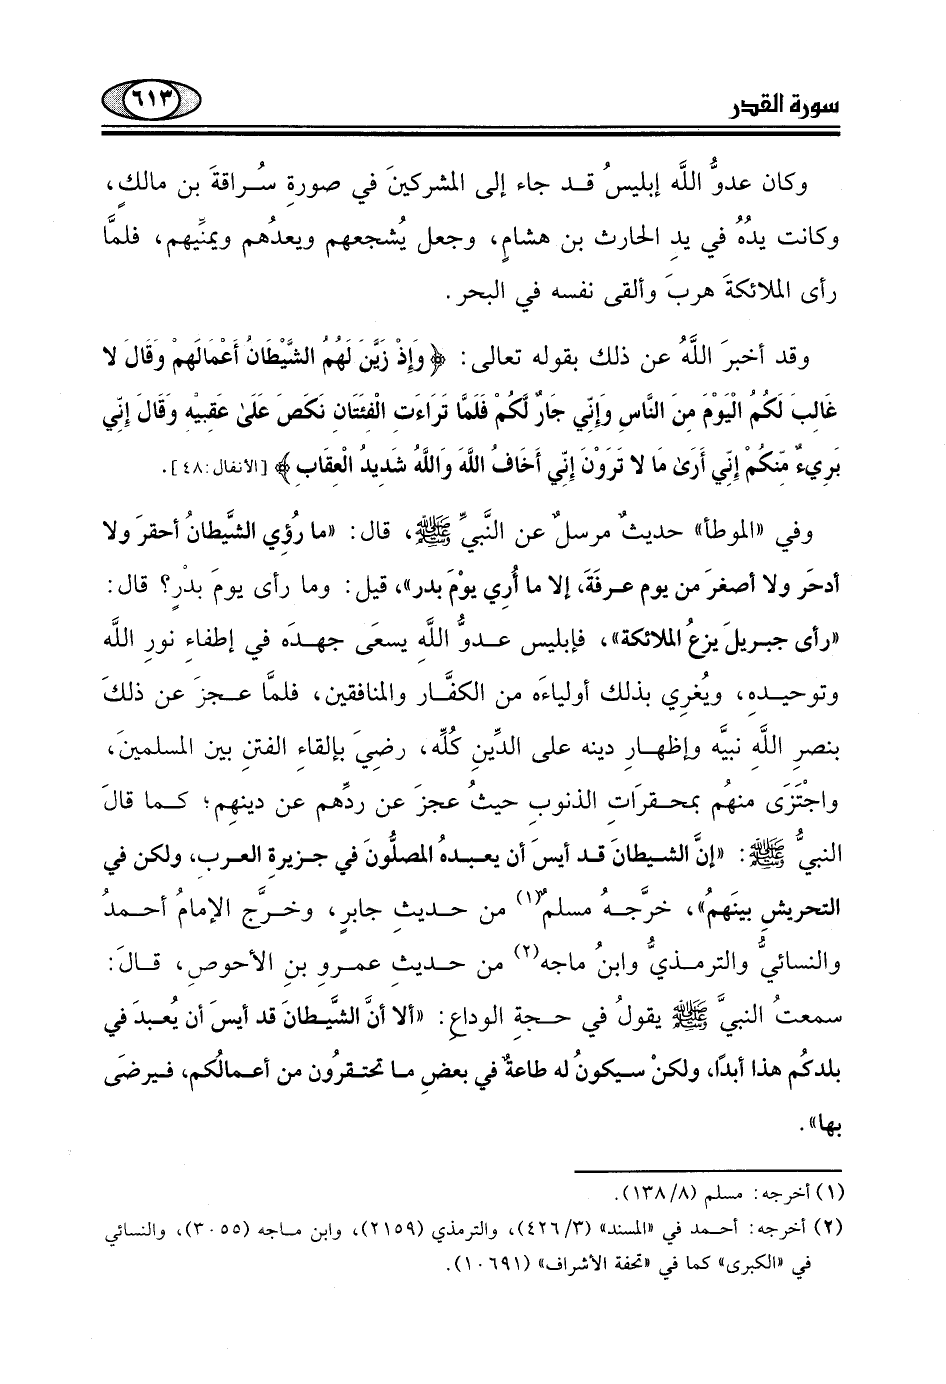 سورة القدر
٦١٣
وكان عدوُّ اللَّه إبليسُ قد جاء إلى المشركينَ في صورةِ سُراقةَ بن مالكٍ،
وكانت يدُهُ في يدِ الحارث بن هشامٍ، وجعل يُشجعهم ويعدُهم ويمنِّيهم، فلمَّا
رأى الملائكةَ هربَ وألقى نفسه في البحر.
وقد أخبرَ اللَّهُ عن ذلك بقوله تعالى: ﴿وَإِذْ زَيَّنَ لَهُمُ الشَّيْطَانُ أَعْمَالَهُمْ وَقَالَ لا
غَالِبَ لَكُمُ الْيَوْمَ مِنَ النَّاسِ وَإِنِّي جَارٌ لَّكُمْ فَلَمَّا تَرَاءَتِ الْفِئَتَانِ نَكَصَ عَلَىٰ عَقِبَيْهِ وَقَالَ إِنِّي
بَرِيءٌ مِّنكُمْ إِنِّي أَرَىٰ مَا لا تَرَوْنَ إِنِّي أَخَافُ اللَّهَ وَاللَّهُ شَدِيدُ الْعِقَابِ﴾ [الأنفال:٤٨].
وفي «الموطأ» حديثٌ مرسلٌ عن النَّبيِّ ﷺ، قال: «ما رُؤي الشَّيطانُ أحقرَ ولا
أدحَر ولا أصغرَ من يوم عرفَةَ، إلا ما أُري يوْمَ بدر»، قيل: وما رأى يومَ بدْرٍ؟ قال:
«رأى جبريلَ يزعُ الملائكة»، فإبليس عدوُّ اللَّه يسعَى جهدَه في إطفاءِ نور اللَّه
وتوحيدِه، ويُغري بذلك أولياءَه من الكفَّار والمنافقين، فلمَّا عجزَ عن ذلكَ
بنصرِ اللَّه نبيَّه وإظهارِ دينه على الدِّينِ كُلِّه، رضيَ بإلقاءِ الفتنِ بين المسلمينَ،
واجْتَزَى منهُم بمحقرَاتِ الذنوبِ حيثُ عجزَ عن ردِّهم عن دينهم؛ كما قالَ
النبيُّ ﷺ: «إنَّ الشيطانَ قد أيسَ أن يعبدهُ المصلُّونَ في جزيرةِ العربِ، ولكن في
التحريشِ بينَهمُ»، خرَّجهُ مسلمٌ(١) من حديثِ جابرٍ، وخرَّج الإمامُ أحمدُ
والنسائيُّ والترمذيُّ وابنُ ماجه(٢) من حديثِ عمرو بنِ الأحوصِ، قالَ:
سمعتُ النبيَّ ﷺ يقولُ في حجةِ الوداعِ: «ألا أنَّ الشَّيطانَ قد أيسَ أن يُعبدَ في
بلدكُم هذا أبدًا، ولكنْ سيكونُ له طاعةٌ في بعضِ ما تحتقرُون من أعمالكُم، فيرضَى
بها».
(١) أخرجه: مسلم (١٣٨/٨).
(٢) أخرجه: أحمد في «المسند» (٤٢٦/٣)، والترمذي (٢١٥٩)، وابن ماجه (٣٠٥٥)، والنسائي
في «الكبرى» كما في «تحفة الأشراف» (١٠٦٩١).